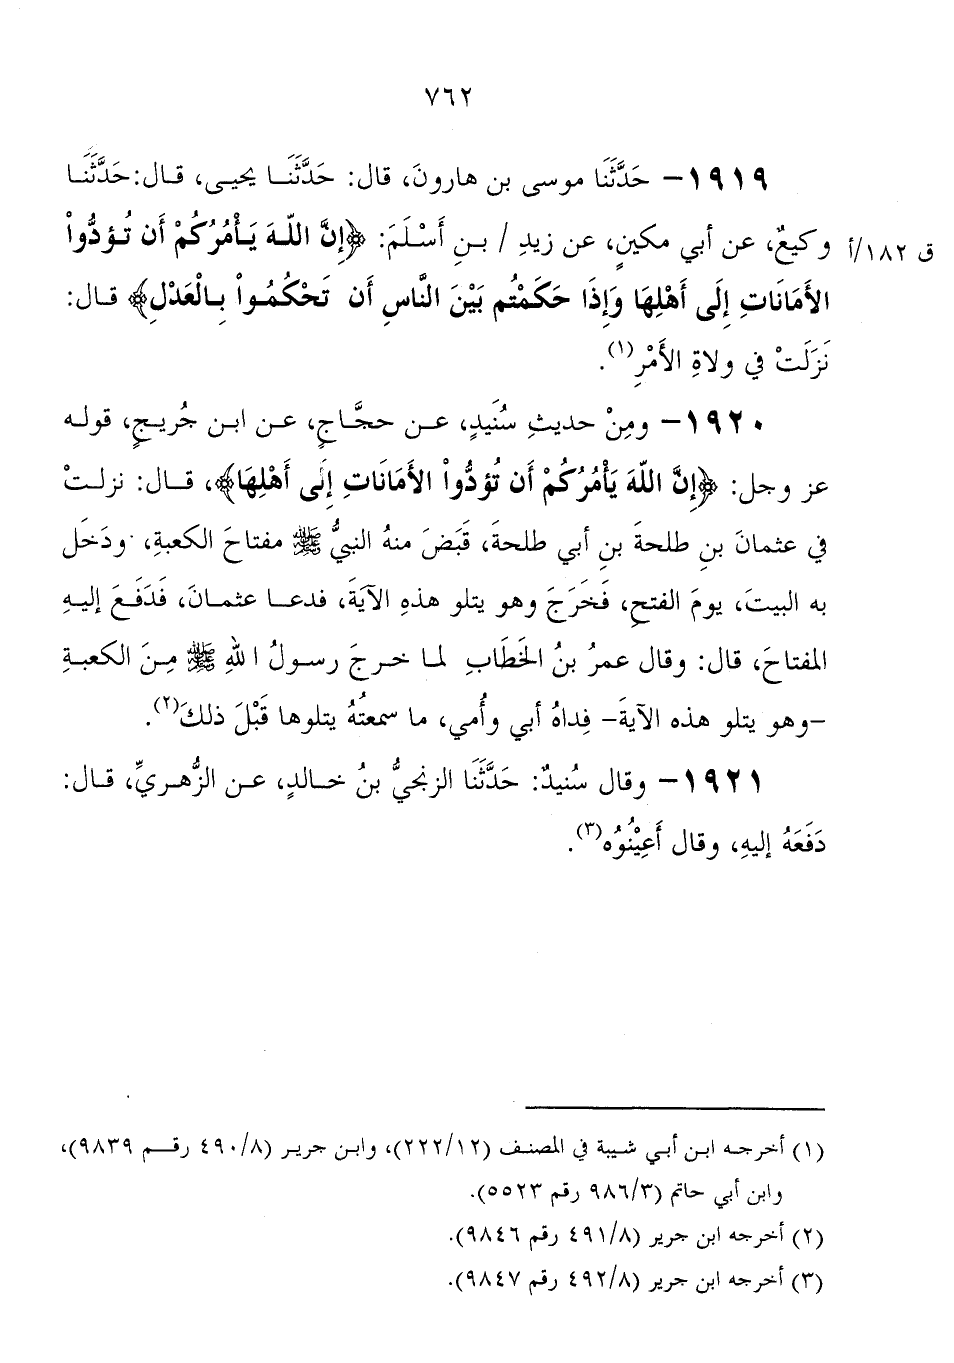 ٧٦٢
١٩١٩- حَدَّثَنَا موسى بن هارونَ، قال: حَدَّثَنَـا يحيـى، قـال:حَدَّثَنَـا
وكيعٌ، عن أبي مكينٍ، عن زيدِ / بـنِ أَسْـلَمَ: ﴿إِنَّ اللّـهَ يَـأْمُرُكُمْ أَن تُـؤدُّواْ
ق ١٨٢/أ
الأَمَانَاتِ إِلَى أَهْلِهَا وَإِذَا حَكَمْتُم بَيْنَ النَّاسِ أَن تَحْكُمُـواْ بِـالْعَدْلِ﴾ قـال:
نَزَلَتْ في ولاةِ الأَمْرِ(١).
١٩٢٠- ومِنْ حديثِ سُنَيدٍ، عـن حجَّـاجٍ، عـن ابـن جُريـجٍ، قولـه
عز وجل: ﴿إِنَّ اللّهَ يَأْمُرُكُمْ أَن تُؤدُّواْ الأَمَانَاتِ إِلَى أَهْلِهَا﴾، قـال: نزلـتْ
في عثمانَ بنِ طلحةَ بنِ أبي طلحةَ، قَبَضَ منهُ النبيُّ ﷺ مفتاحَ الكعبةِ، ودَخَل
به البيتَ، يومَ الفتحِ، فَخَرَجَ وهو يتلو هذهِ الآيَةَ، فدعـا عثمـانَ، فَدَفَـعَ إليـهِ
المفتاحَ، قال: وقال عمرُ بنُ الخَطَابِ لمـا خـرجَ رسـولُ اللهِ ﷺ مِـنَ الكعبـةِ
-وهو يتلو هذه الآيةَ- فِداهُ أبي وأُمي، ما سمعتُهُ يتلوها قَبْلَ ذلكَ(٢).
١٩٢١- وقال سُنيدٌ: حَدَّثَنَا الزنجيُّ بنُ خـالدٍ، عـن الزُّهـريِّ، قـال:
دَفَعَهُ إليهِ، وقال أَعِيْنُوُه(٣).
(١) أخرجـه ابـن أبـي شـيبة في المصنـف (٢٢٢/١٢)، وابـن جريـر (٤٩٠/٨ رقـم ٩٨٣٩)،
وابن أبي حاتم (٩٨٦/٣ رقم ٥٥٢٣).
(٢) أخرجه ابن جرير (٤٩١/٨ رقم ٩٨٤٦).
(٣) أخرجه ابن جرير (٤٩٢/٨ رقم ٩٨٤٧).